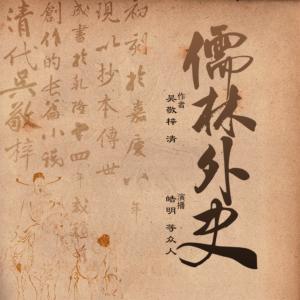 儒林外史
作者
吴敬梓 清
演播
皓明 等众人
清代吳敬梓
創作的長篇小説
成書於乾隆十四年
現以抄本傳世
初刻於嘉慶八年